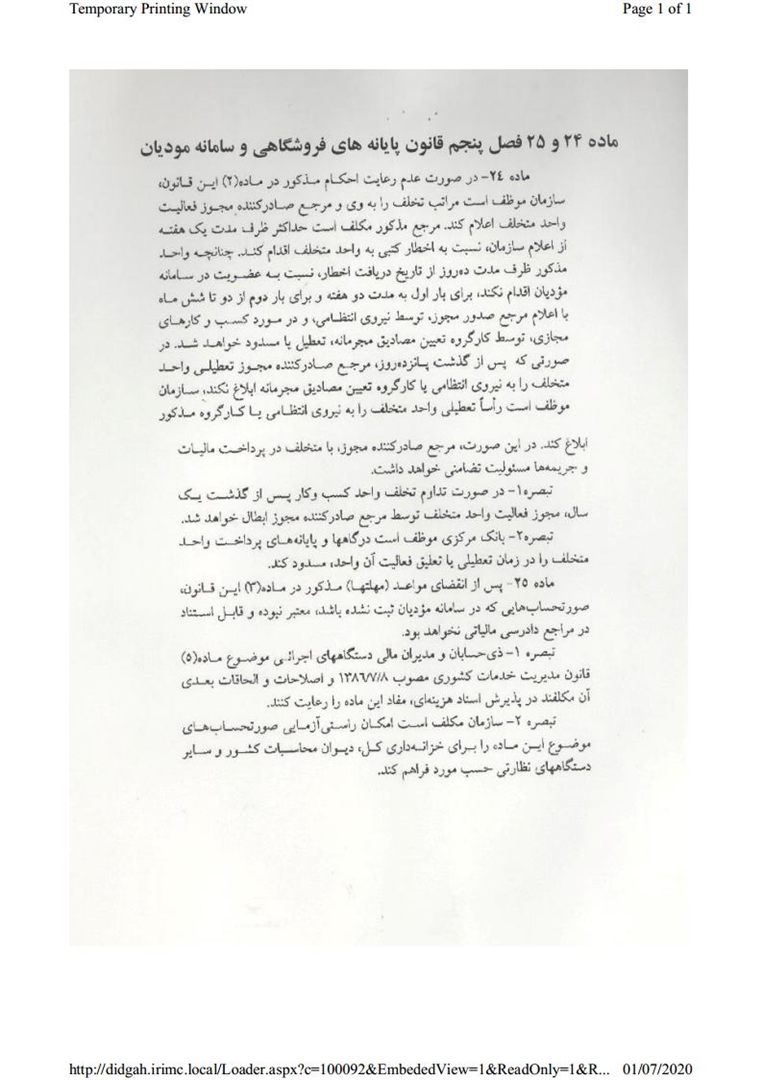 Temporary Printing Window
Page 1 of 1
ماده ۲۴ و ۲۵ فصل پنجم قانون پایانه های فروشگاهی و سامانه مودیان
ماده ۲٤- در صورت عدم رعایت احکام مذکور در ماده(۲) این قانون،
سازمان موظف است مراتب تخلف را به وی و مرجع صادرکننده مجوز فعالیت
واحد متخلف اعلام کند. مرجع مذکور مکلف است حداکثر ظرف مدت یک هفته
از اعلام سازمان، نسبت به اخطار کتبی به واحد متخلف اقدام کند. چنانچه واحد
مذکور ظرف مدت ده‌روز از تاریخ دریافت اخطار، نسبت به عضویت در سامانه
مؤدیان اقدام نکند، برای بار اول به مدت دو هفته و برای بار دوم از دو تا شش ماه
با اعلام مرجع صدور مجوز، توسط نیروی انتظامی، و در مورد کسب و کارهای
مجازی، توسط کارگروه تعیین مصادیق مجرمانه، تعطیل یا مسدود خواهد شد. در
صورتی که پس از گذشت پانزده‌روز، مرجع صادرکننده مجوز تعطیلی واحد
متخلف را به نیروی انتظامی یا کارگروه تعیین مصادیق مجرمانه ابلاغ نکند، سازمان
موظف است رأساً تعطیلی واحد متخلف را به نیروی انتظامی یا کارگروه مذکور
ابلاغ کند. در این صورت، مرجع صادرکننده مجوز، با متخلف در پرداخت مالیات
و جریمه‌ها مسئولیت تضامنی خواهد داشت.
تبصره۱- در صورت تداوم تخلف واحد کسب وکار پس از گذشت یک
سال، مجوز فعالیت واحد متخلف توسط مرجع صادرکننده مجوز ابطال خواهد شد.
تبصره۲- بانک مرکزی موظف است درگاهها و پایانه‌های پرداخت واحد
متخلف را در زمان تعطیلی یا تعلیق فعالیت آن واحد، مسدود کند.
ماده ۲۵- پس از انقضای مواعد (مهلتها) مذکور در ماده(۳) این قانون،
صورتحساب‌هایی که در سامانه مؤدیان ثبت نشده باشد، معتبر نبوده و قابل استناد
در مراجع دادرسی مالیاتی نخواهد بود.
تبصره ۱- ذی‌حسابان و مدیران مالی دستگاههای اجرائی موضوع ماده(۵)
قانون مدیریت خدمات کشوری مصوب ۱۳۸۶/۷/۸ و اصلاحات و الحاقات بعدی
آن مکلفند در پذیرش اسناد هزینه‌ای، مفاد این ماده را رعایت کنند.
تبصره ۲- سازمان مکلف است امکان راستی‌آزمایی صورتحساب‌های
موضوع این ماده را برای خزانه‌داری کل، دیوان محاسبات کشور و سایر
دستگاههای نظارتی حسب مورد فراهم کند.
http://didgah.irimc.local/Loader.aspx?c=100092&EmbededView=1&ReadOnly=1&R...
01/07/2020